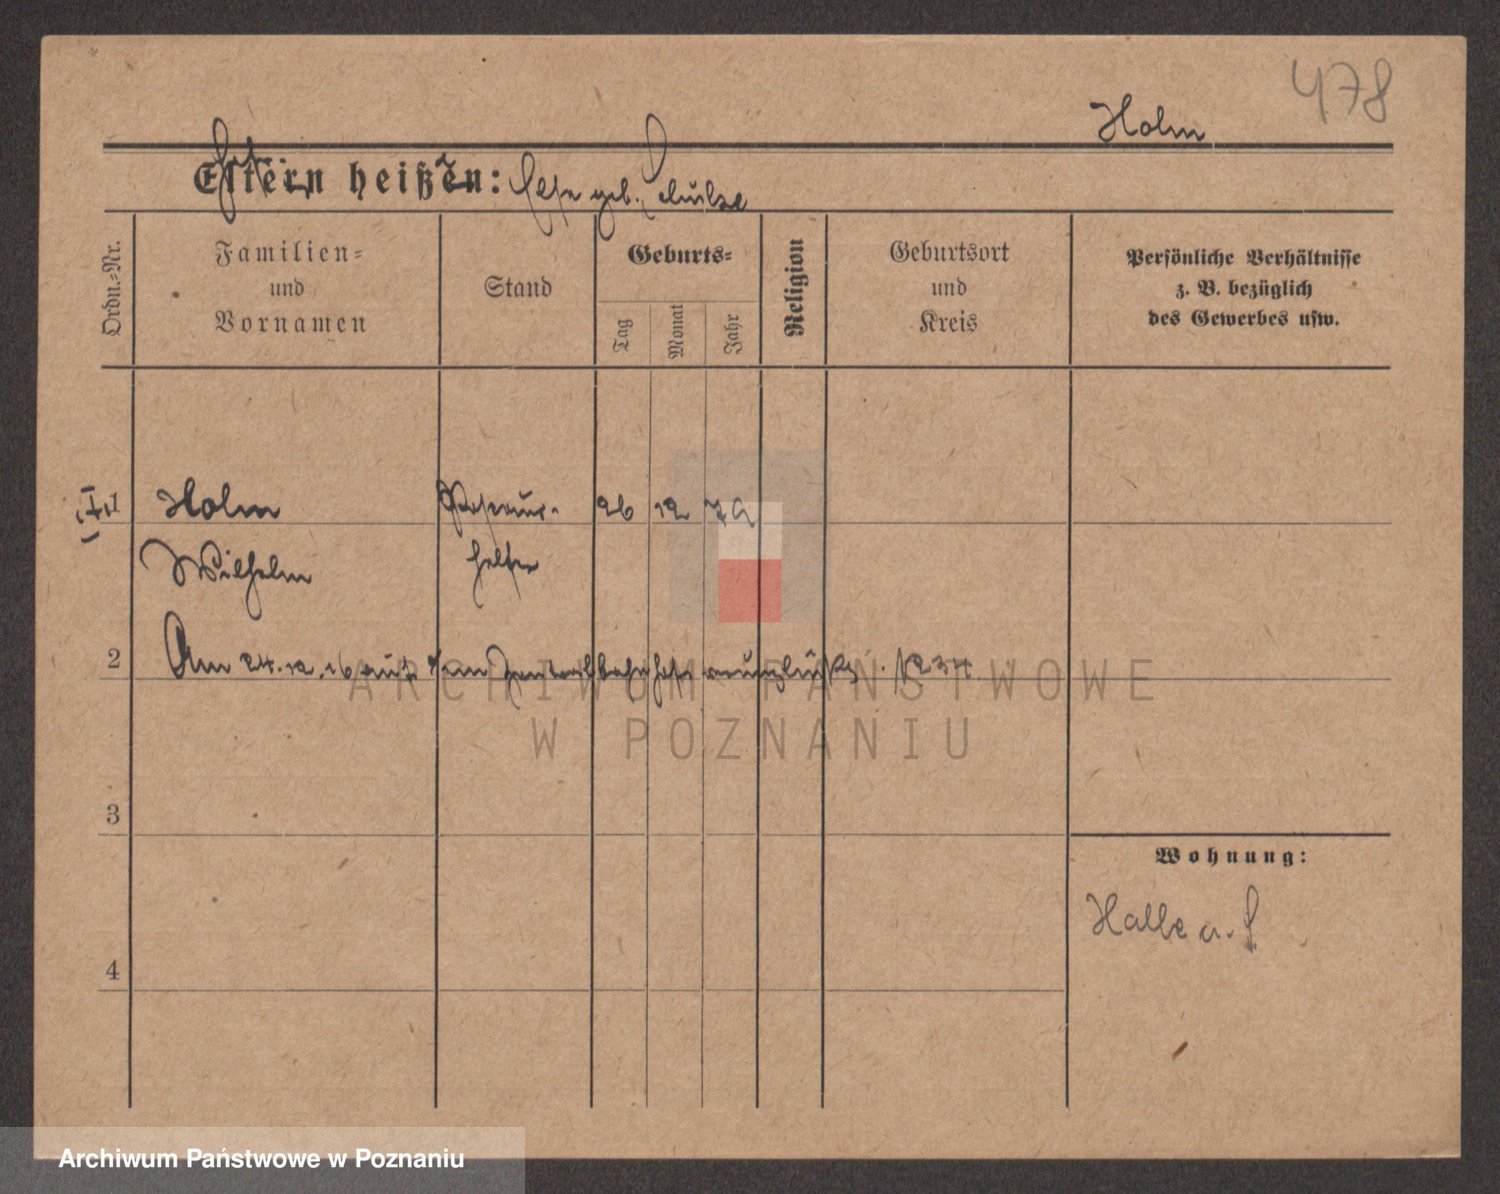 478
Holm
Eltern heißen: Else geb. Schulze
Ordn.-Nr.
Familien-
und
Vornamen
Stand
Geburts-
Tag
Monat
Jahr
Religion
Geburtsort
und
Kreis
Persönliche Verhältnisse
z. B. bezüglich
des Gewerbes usw.
1 Holm 26 12 79
Wilhelm helfer
2 Am 24.12.16 auf dem Zentralbahnhof verunglückt. 1234
ARCHIWUM PAŃSTWOWE
W POZNANIU
3
Wohnung:
Halle a. S
4
Archiwum Państwowe w Poznaniu